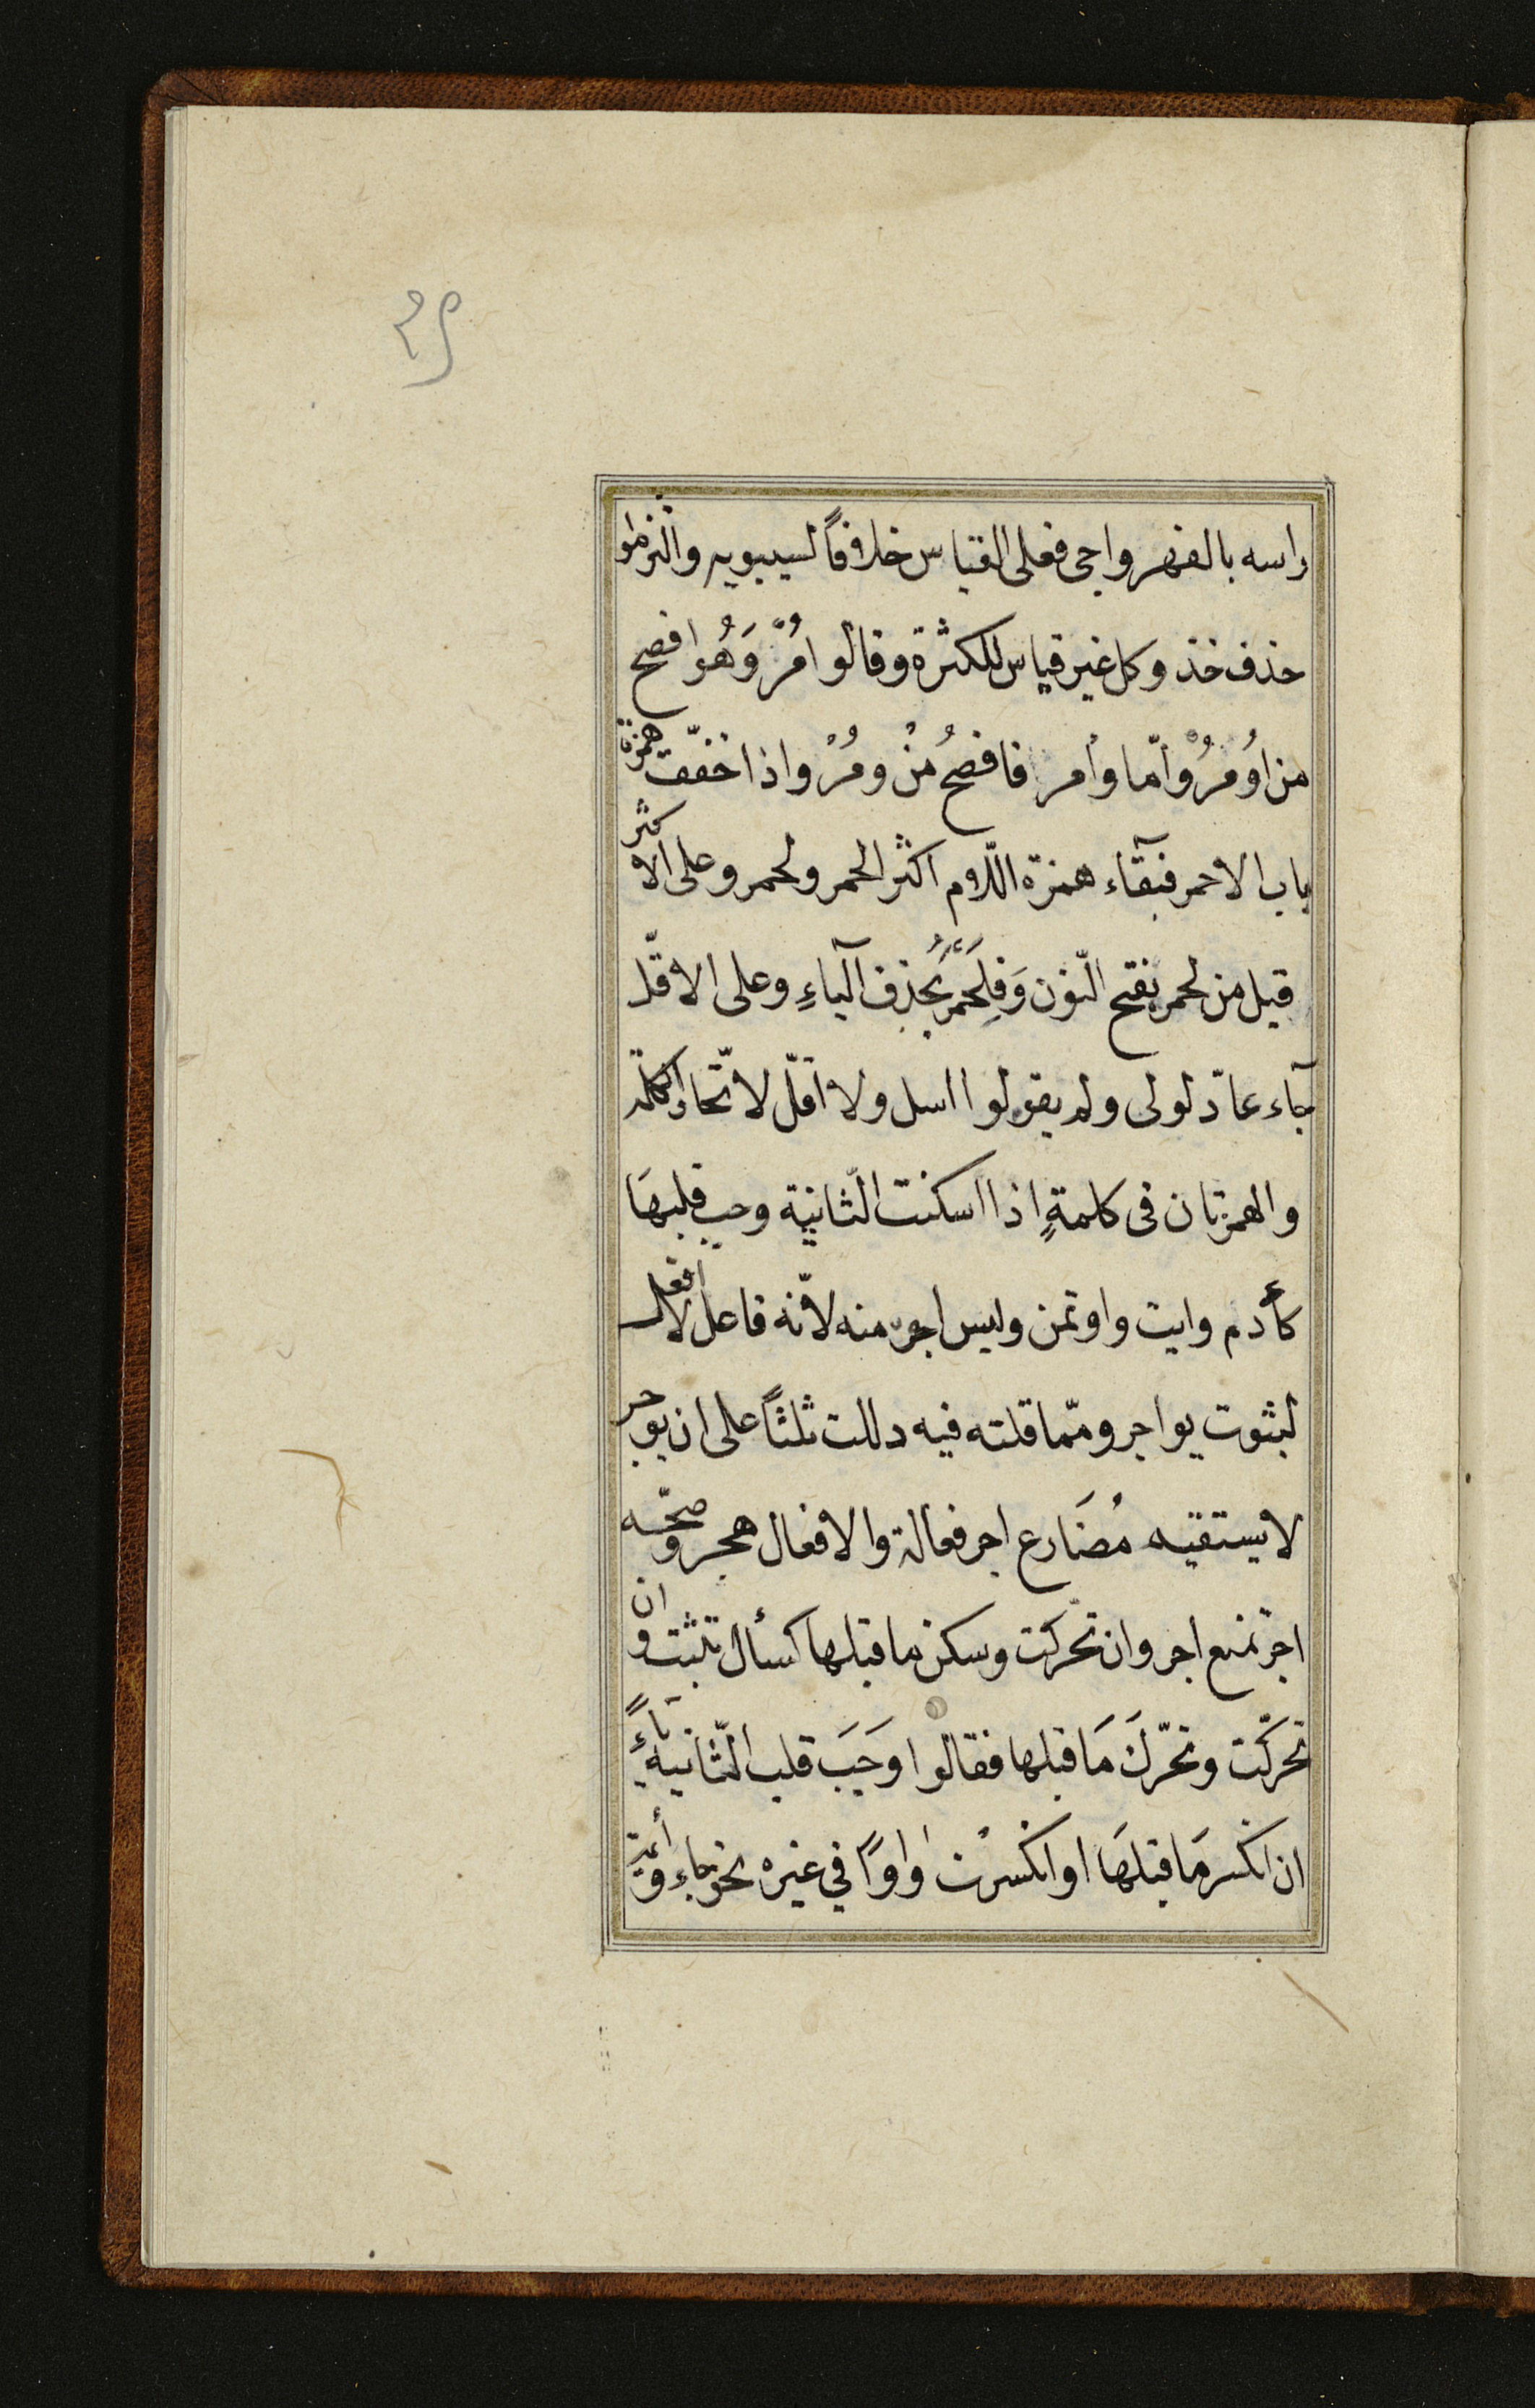 راسه بالفهر واجی فعلی القیاس خلافاً لسیبویه والتزموا
خذف خذ وکل غیر قیاس للکثرة وقالوا مُرْ وَهُوَ افصح
من اوُمُرْ وامّا وأمر فافصحُ مُنْ ومُرْ واذا خفّفت همزة
باب الاحمر فبقآء همزة اللّام اکثر الحمر ولحمر وعلی الاکثر
قیل من لحمر بفتح النّون وَفِلَحْمَر بحُذِف الیآءِ وعلی الاقلّ
جآء عادّ لولی ولم یقولوا اسل ولا اقلّ لاتّحاد الکلمة
والهمزتان فی کلمةٍ اذا اسکنت الثّانیة وجب قلبهَا
کأدم وایت واوتمن ولیس اجر منه لانّه فاعل لا افعل
لبثوت یواجر وممّا قلته فیه دللت ثلثاً علی ان یوجر
لا یستقیم مُضَارع اجر فعالة والافعال عجز وصحّه
اجر تمنع اجر وان تحرکت وسکن ما قبلها کسأل تثبت وان
تحرکّت وتحّرك مَا قبلها فقالوا وَجَبَ قلب الثّانیة یآءً
ان انکسر مَا قبلهَا او انکسرت واوًا في غیره نحو جاء وائمّة